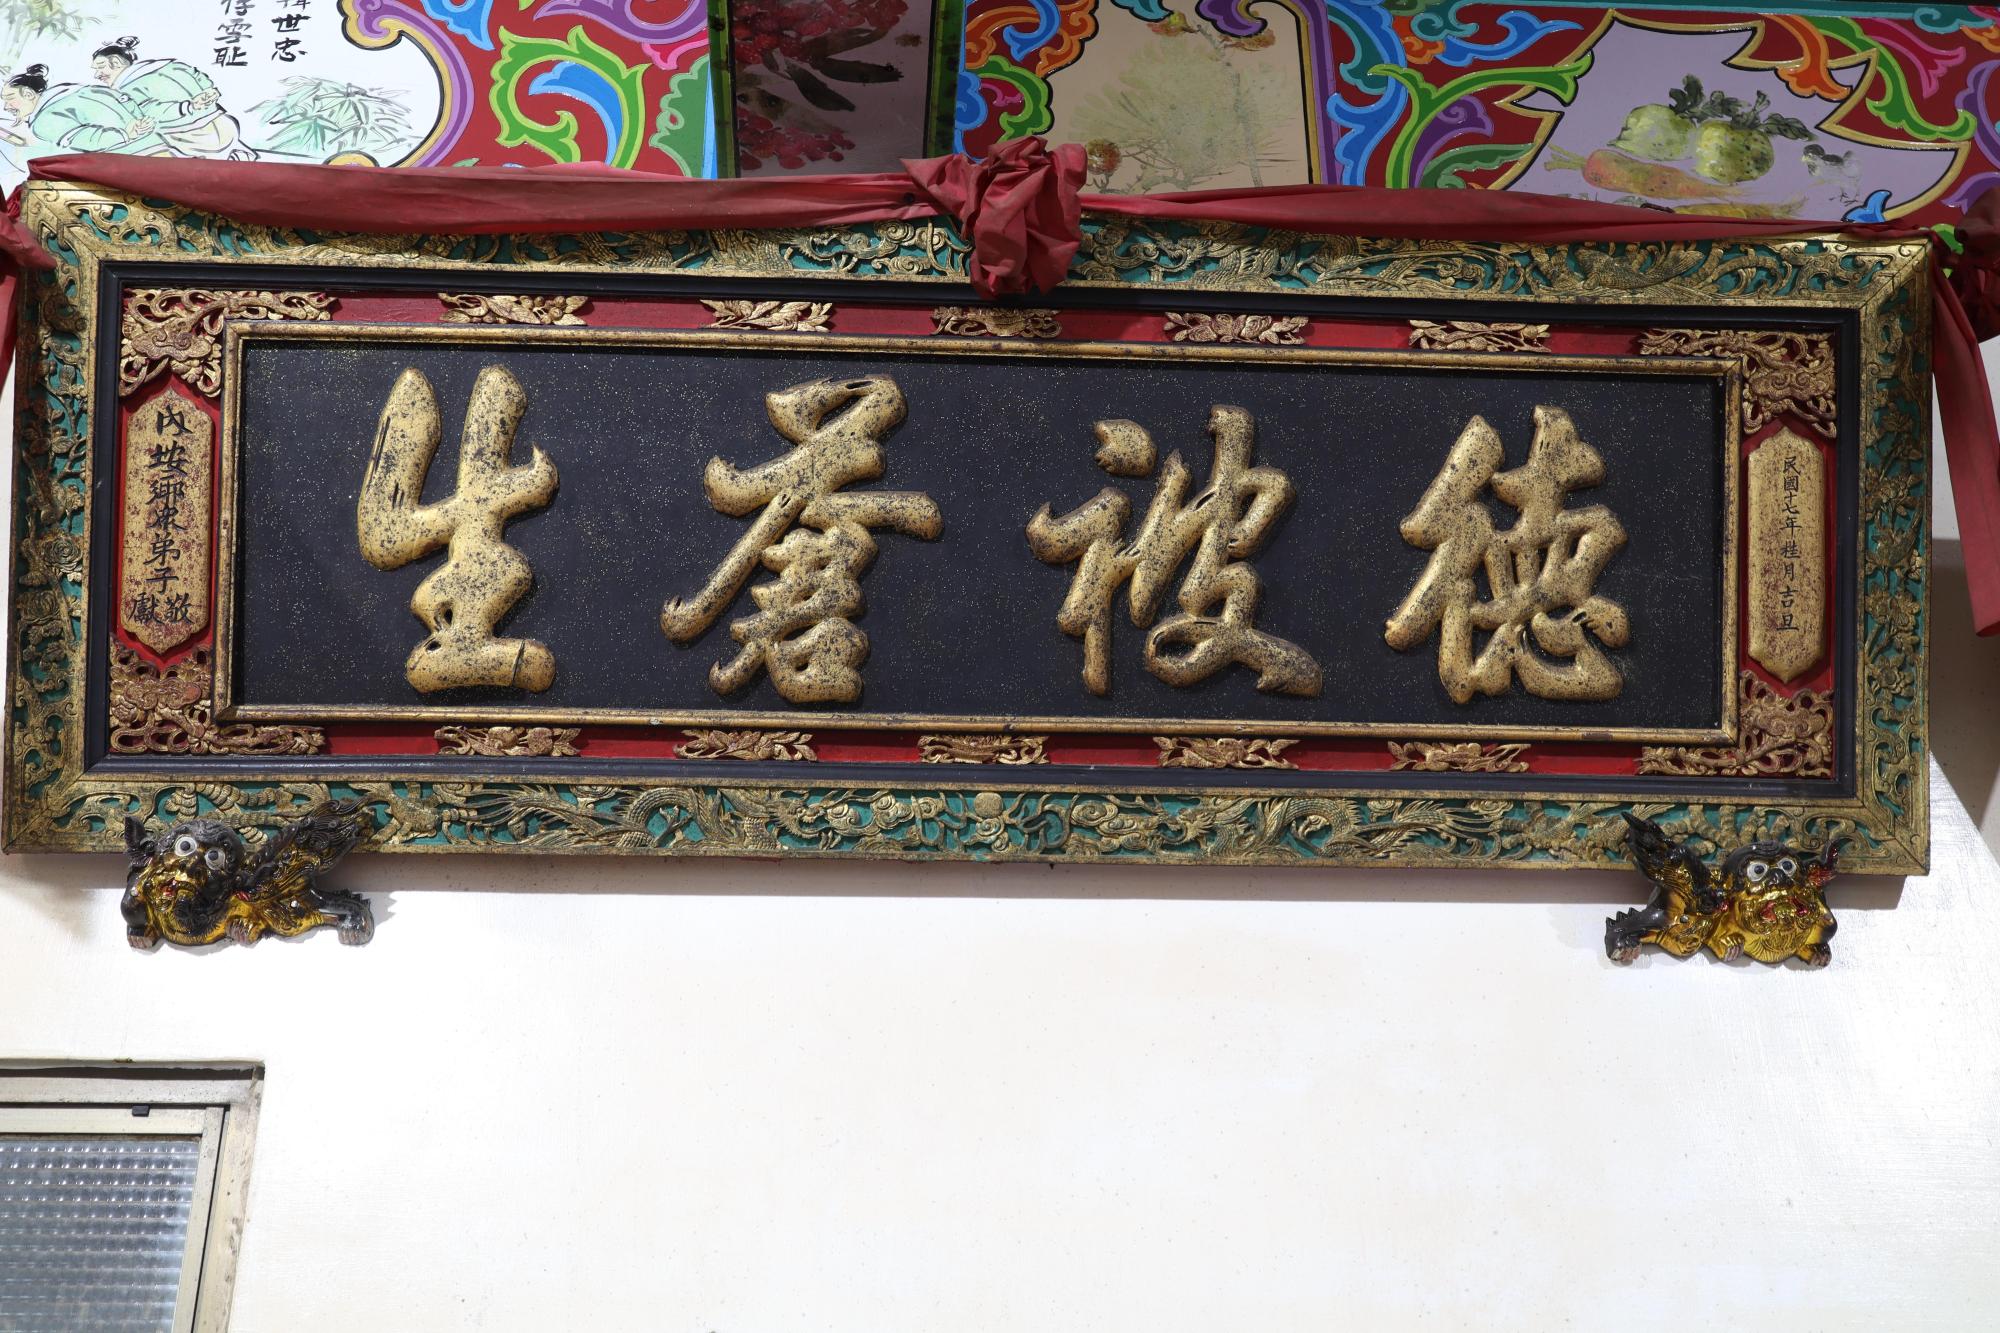 德被蒼生
民國十七年桂月吉旦
內垵鄉眾弟子敬獻
世忠
雪耻